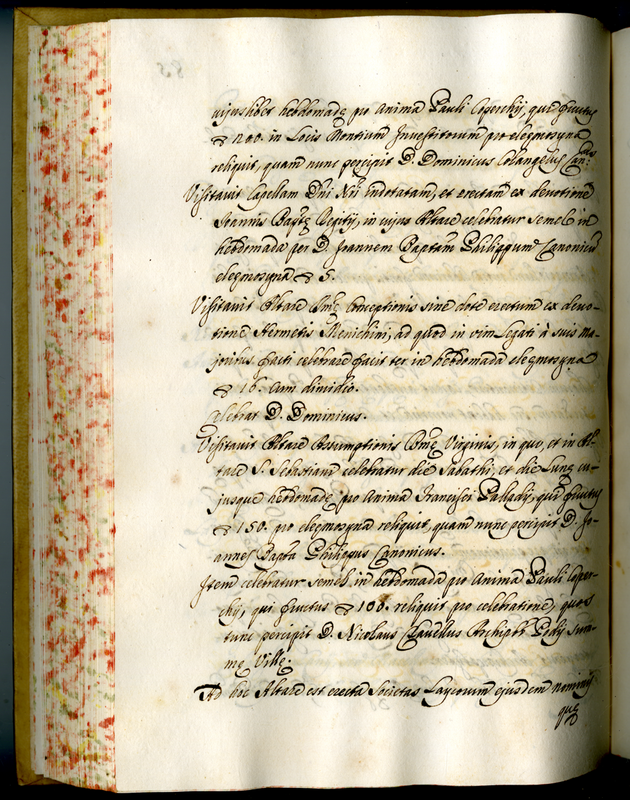 cujuslibet hebdomadę pro Anima Pauli Caperchij, qui fructus
▽ 200. in Locis Montium Investitorum pro elęmosyna
reliquit, quam nunc percipit D. Dominicus Colangelus Can:cus
Visitavit Capellam Dñi Nri indotatam, et erectam ex devotione
Ioannis Baptę Regitij, in cujus Altare celebratur semel in
hebdomada per D. Joannem Baptam Philippum Canonicum
elęmosyna ▽ 5.
Visitavit Altare Bmę Conceptionis sine dote erectum ex devo-
tione Hermetis Menichini, ad quod in vim Legati à suis Ma-
joribus facti celebrare facit ter in hebdomada elęmosyna
▽ 16. cum dimidio.
Celebrat D. Dominicus.
Visitavit Altare Assumptionis Bmę Virginis, in quo, et in Al-
tare S. Sebastiani celebratur die Sabathi, et die Lunę cu-
jusque hebdomadę pro Anima Francisci Palladij, qui fructus
▽ 150. pro elęmosyna reliquit, quam nunc percipit D. Jo-
annes Bapta Philippus Canonicus.
Item celebratur semel in hebdomada pro Anima Pauli Caper-
chij, qui fructus ▽ 100. reliquit pro celebratione, quos
tunc percipit D. Nicolaus Clavellus Archipbr Podij Sum-
mę Villę.
Ad hoc Altare est erecta Societas Laycorum ejusdem nominis
quę